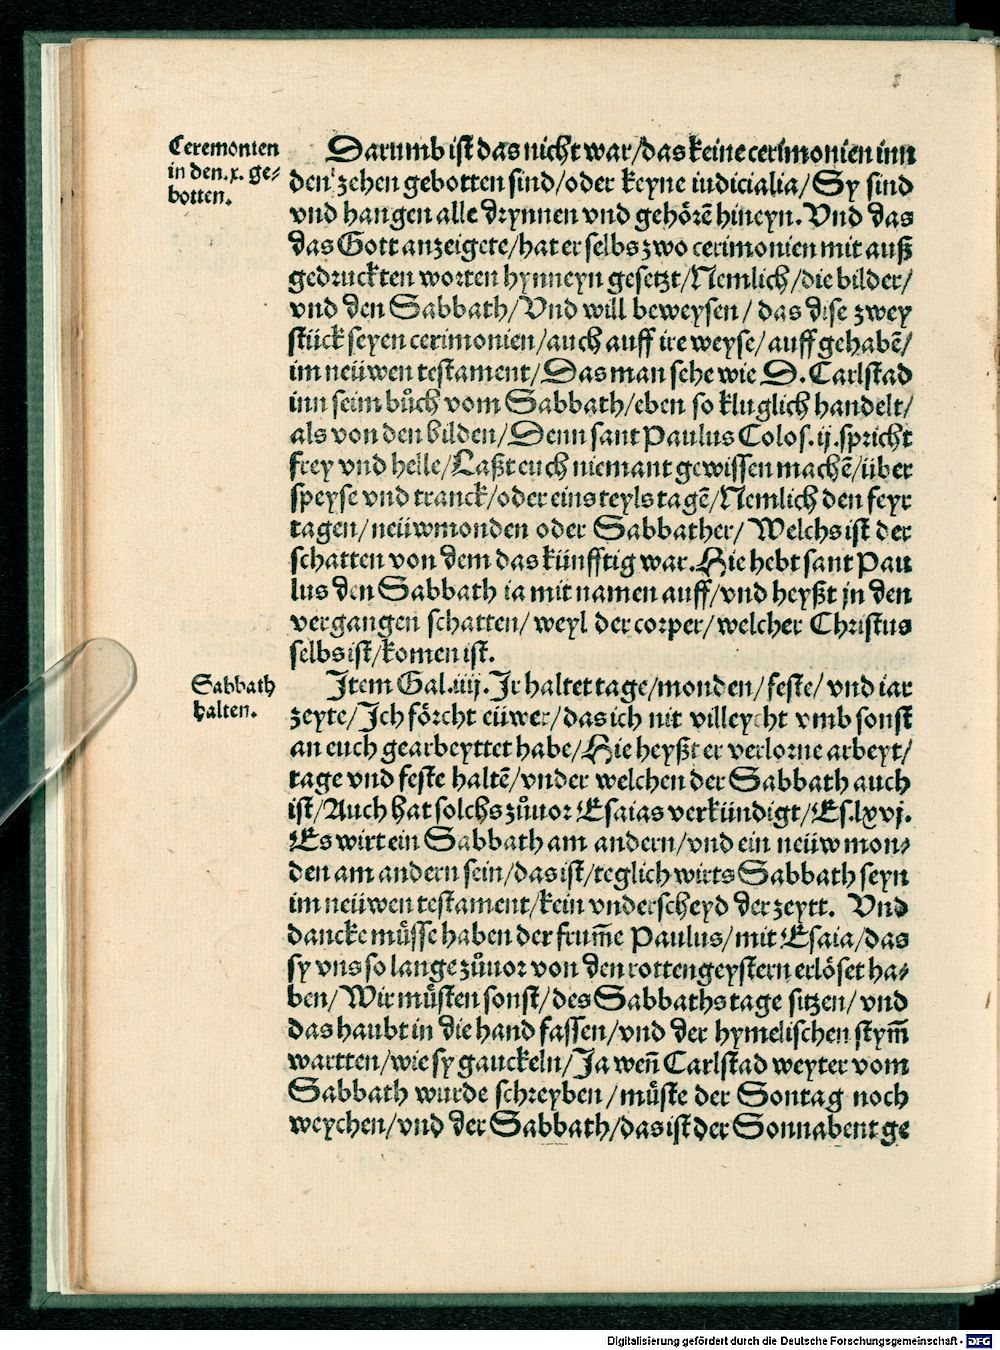 Ceremonien
in den .x. ge⸗
botten.
Darumb ist das nicht war/das keine cerimonien inn
den zehen gebotten sind/oder keyne iudicialia/Sy sind
vnd hangen alle drynnen vnd gehörē hineyn. Vnd das
das Gott anzeigete/hat er selbs zwo cerimonien mit auß
gedruckten worten hynneyn gesetzt/Nemlich/die bilder/
vnd den Sabbath/Vnd will beweysen/das dise zwey
stück seyen cerimonien/auch auff ire weyse/auff gehabē/
im neüwen testament/Das man sehe wie D. Carlstad
inn seim bůch vom Sabbath/eben so kluglich handelt/
als von den bilden/Denn sant Paulus Colos. ij. spricht
frey vnd helle/Laßt euch niemant gewissen machē/über
speyse vnd tranck/oder eins teyls tagē/Nemlich den feyr
tagen/neüwmonden oder Sabbather/Welchs ist der
schatten von dem das künfftig war. Hie hebt sant Pau
lus den Sabbath ia mit namen auff/vnd heyßt jn den
vergangen schatten/weyl der corper/welcher Christus
selbs ist/komen ist.
Sabbath
halten.
Item Gal. iiij. Ir haltet tage/monden/feste/vnd iar
zeyte/Ich förcht eüwer/das ich nit villeycht vmb sonst
an euch gearbeyttet habe/Hie heyßt er verlorne arbeyt/
tage vnd feste haltē/vnder welchen der Sabbath auch
ist/Auch hat solchs zůuor Esaias verkündigt/Es. lxvj.
Es wirt ein Sabbath am andern/vnd ein neüw mon⸗
den am andern sein/das ist/teglich wirts Sabbath seyn
im neüwen testament/kein vnderscheyd der zeytt. Vnd
dancke müsse haben der frum̄e Paulus/mit Esaia/das
sy vns so lange zůuor von den rottengeystern erlöset ha⸗
ben/Wir müsten sonst/des Sabbaths tage sitzen/vnd
das haubt in die hand fassen/vnd der hymelischen stym̄
wartten/wie sy gauckeln/Ja wen̄ Carlstad weyter vom
Sabbath wurde schreyben/müste der Sontag noch
weychen/vnd der Sabbath/das ist der Sonnabent ge
Digitalisierung gefördert durch die Deutsche Forschungsgemeinschaft - DFG